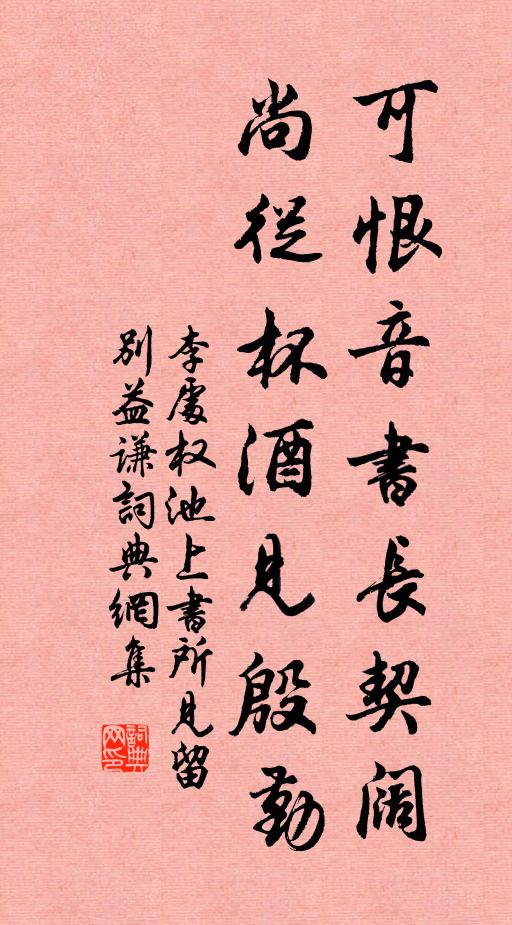 可恨音書長契阔
尚從杯酒見殷勤
李處权池上書所見留
别益谦詞典網集
詞典网印